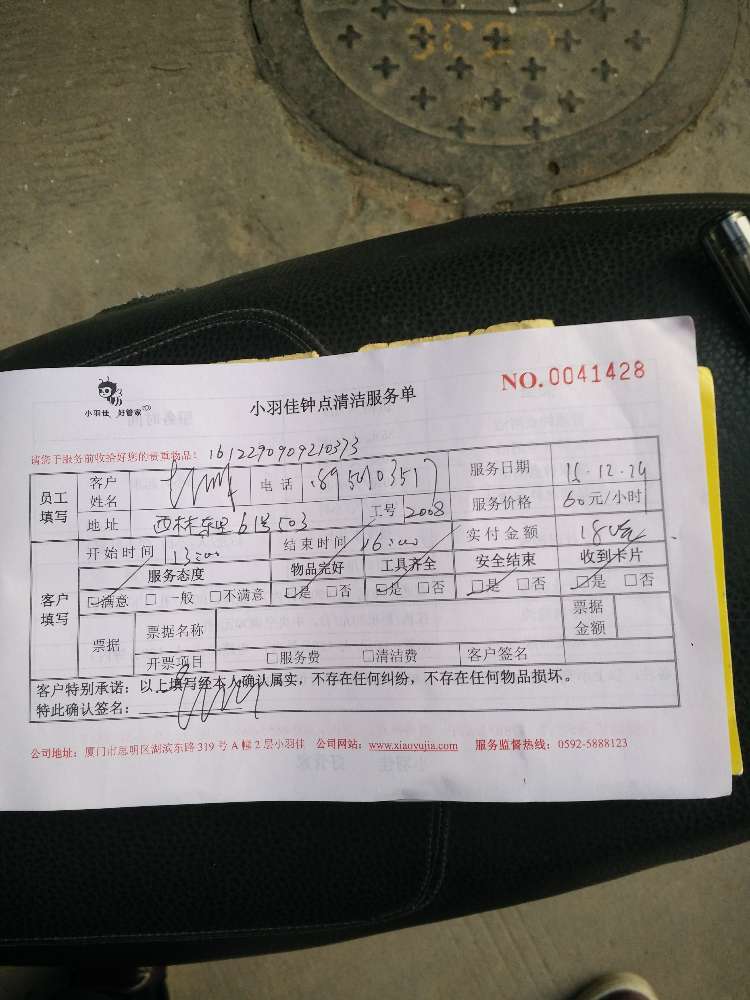 小羽佳 好管家
小羽佳钟点清洁服务单
NO.0041428
请您于服务前收给好您的贵重物品: 1612290909210373
员工填写 客户姓名 电话 服务日期
地址 西林东里61号503 工号 2008 服务价格 60元/小时
客户填写 开始时间 13:00 结束时间 16:00 实付金额 180元
服务态度 物品完好 工具齐全 安全结束 收到卡片
□满意 □一般 □不满意 □是 □否 □是 □否 □是 □否 □是 □否
票据 票据名称 票据金额
开票项目 □服务费 □清洁费 客户签名
客户特别承诺:以上填写经本人确认属实,不存在任何纠纷,不存在任何物品损坏。
特此确认签名:
公司地址:厦门市思明区湖滨东路319号A幢2层小羽佳 公司网站:www.xiaoyujia.com 服务监督热线:0592-5888123